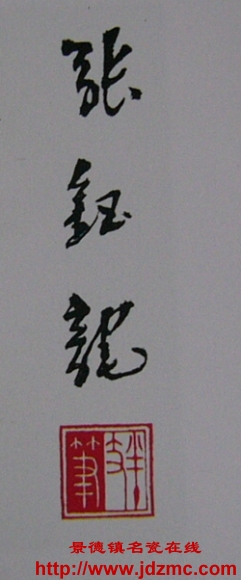 張鈺龍
筆
景德镇名瓷在线
http://www.jdzmc.com